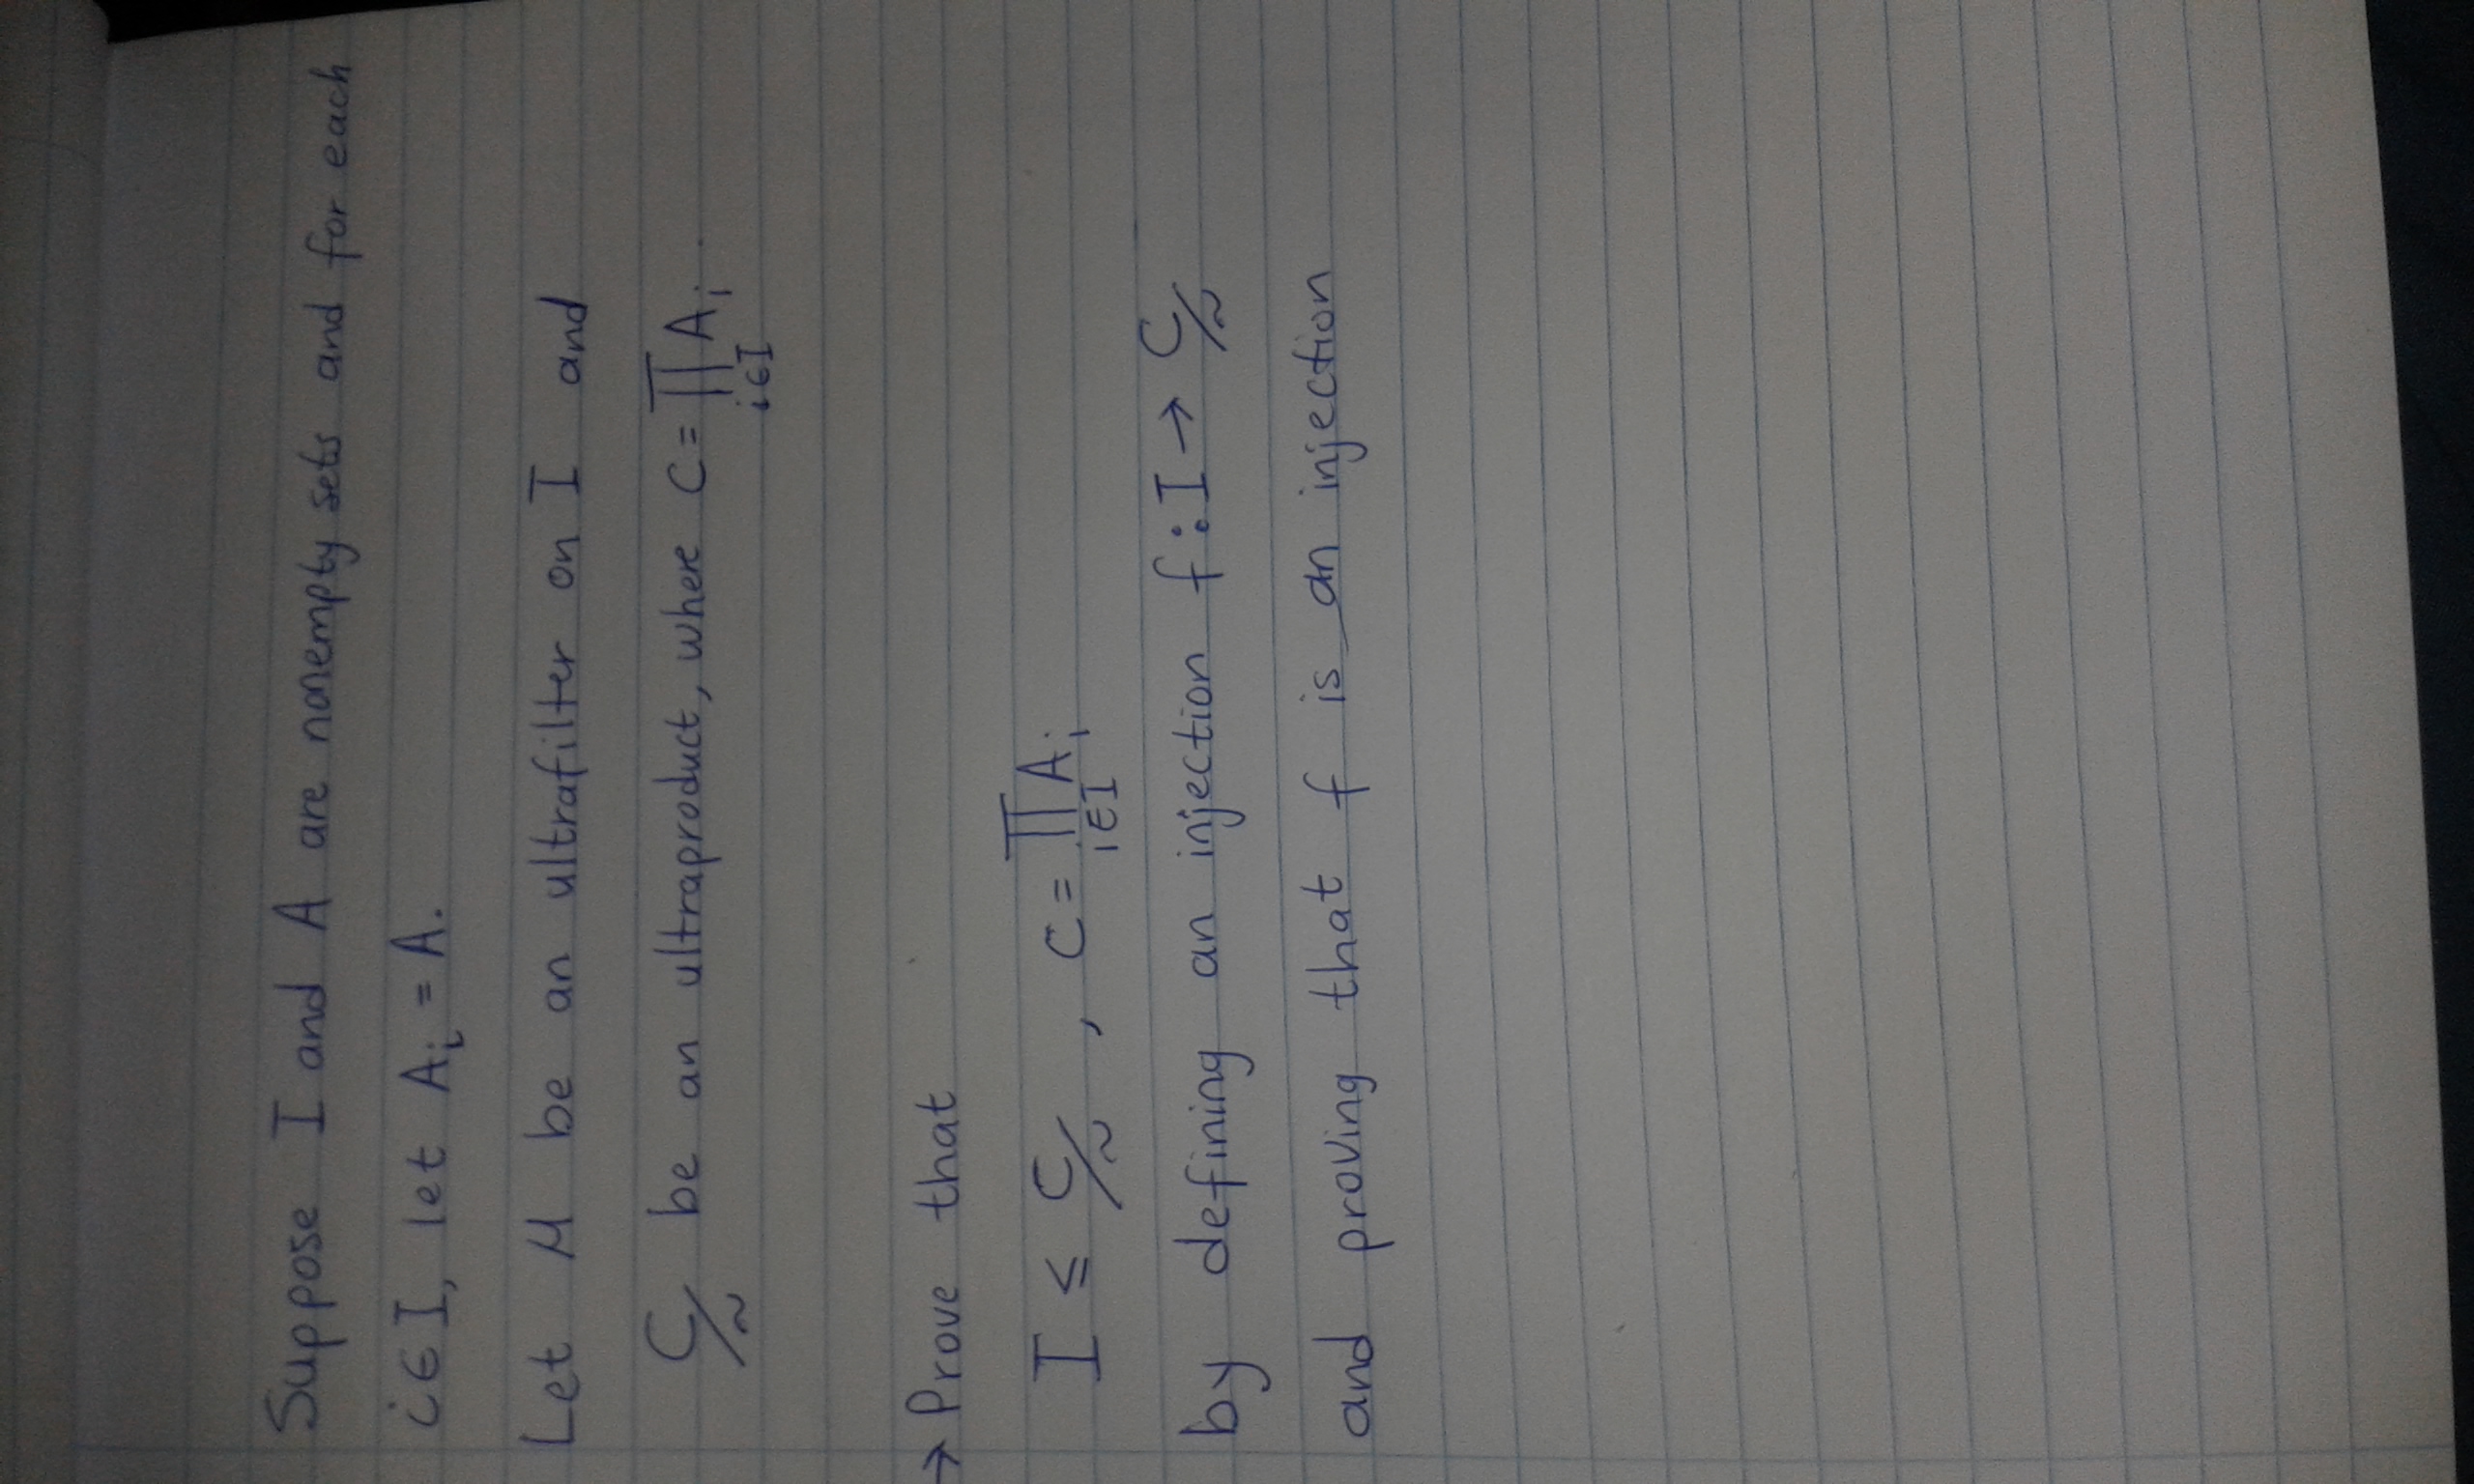 Suppose I and A are nonempty sets and for each
i∈I, let A_i = A.
Let M be an ultrafilter on I and
C/~ be an ultraproduct, where C = ∏_{i∈I} A_i.
→ Prove that
I ≤ C/~ , C = ∏_{i∈I} A_i
by defining an injection f: I → C/~
and proving that f is an injection